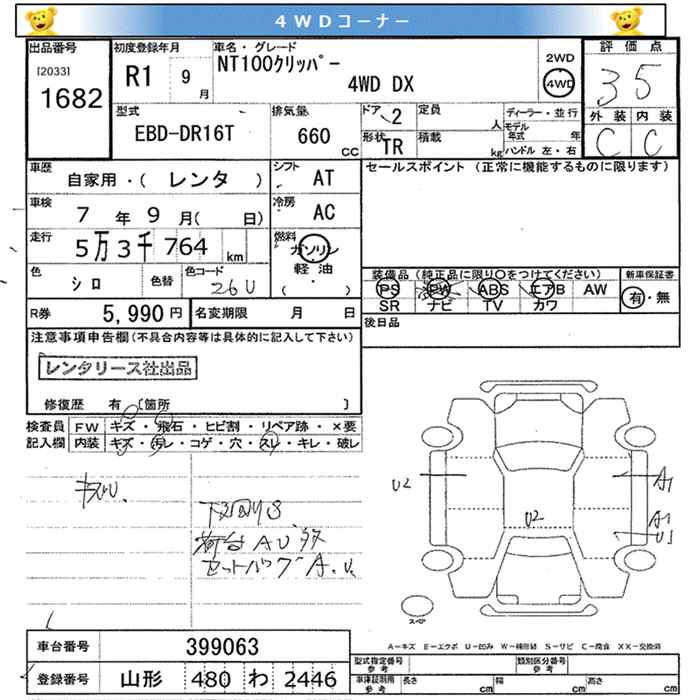 4WDコーナー
出品番号
[2033]
1682
初度登録年月
R1 9 月
車名・グレード
NT100クリッパー
4WD DX
2WD
4WD
評価点
3.5
外装 内装
C C
型式
EBD-DR16T
排気量
660 CC
ドア 2
定員 人
形状 TR
積載 kg
ディーラー・並行
モデル年式 年
ハンドル 左・右
車歴
自家用・( レンタ )
シフト AT
車検
7 年 9 月( 日)
冷房 AC
走行
5万3千764 km
燃料
ガソリン
軽油
( ・ )
色
シロ
色替
色コード
26U
R券 5,990円
名変期限 月 日
セールスポイント (正常に機能するものに限ります)
装備品(純正品に限り○をつけてください)
PS PW ABS エアB AW
SR ナビ TV カワ
新車保証書
有・無
後日品
注意事項申告欄(不具合内容等は具体的に記入して下さい)
レンタリース社出品
修復歴 有 [箇所 ]
検査員記入欄
FW キズ・飛石・ヒビ割・リペア跡・×要
内装 キズ・汚レ・コゲ・穴・スレ・キレ・破レ
キズU.
下回りS
荷台AU多
セットバックA.U.
U2
U2
A1
A1
U1
スペア
A−キズ E−エクボ U−凹み W−補修跡 S−サビ C−腐食 XX−交換済
車台番号 399063
登録番号 山形 480 わ 2446
型式指定番号 参考
類別区分番号 参考
車庫証明用 参考
長さ cm
幅 cm
高さ cm